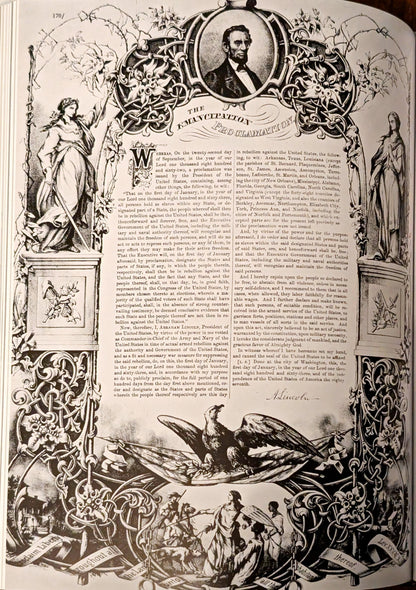 178/
THE
EMANCIPATION
PROCLAMATION.
WHEREAS, On the twenty-second day
of September, in the year of our
Lord one thousand eight hundred
and sixty-two, a proclamation was
issued by the President of the
United States, containing, among
other things, the following, to wit:
"That on the first day of January, in the year of
our Lord one thousand eight hundred and sixty three,
all persons held as slaves within any State, or de-
signated part of a State, the people whereof shall then
be in rebellion against the United States, shall be then,
thenceforward, and forever, free, and the Executive
Government of the United States, including the mili-
tary and naval authority thereof, will recognize and
maintain the freedom of such persons, and will do no
act or acts to repress such persons, or any of them, in
any effort they may make for their actual freedom.
That the Executive will, on the first day of January
aforesaid, by proclamation, designate the States and
parts of States, if any, in which the people therein,
respectively, shall then be in rebellion against the
United States, and the fact that any State, and the
people thereof, shall, on that day, be, in good faith,
represented in the Congress of the United States, by
members chosen thereto at elections, wherein a ma-
jority of the qualified voters of such State shall have
participated, shall, in the absence of strong counter-
vailing testimony, be deemed conclusive evidence that
such State and the people thereof are not then in re-
bellion against the United States."
Now, therefore, I, ABRAHAM LINCOLN, President of
the United States, by virtue of the power in me vested
as Commander-in-Chief of the Army and Navy of the
United States in time of actual armed rebellion against
the authority and Government of the United States,
and as a fit and necessary war measure for suppressing
the said rebellion, do, on this, the first day of January,
in the year of our Lord one thousand eight hundred
and sixty-three, and, in accordance with my purpose
so to do, publicly proclaim, for the full period of one
hundred days from the day first above mentioned, or-
der and designate as the States and parts of States
wherein the people thereof respectively are this day
in rebellion against the United States, the following,
to wit: Arkansas, Texas, Louisiana, (except
the parishes of St. Bernard, Plaquemines, Jeffer-
son, St. James, Ascension, Assumption, Terre-
bonne, Lafourche, St. Martin, and Orleans, includ-
ing the city of New Orleans), Mississippi, Alabama,
Florida, Georgia, South Carolina, North Carolina,
and Virginia (except the forty-eight counties de-
signated as West Virginia, and also the counties of
Berkeley, Accomac, Northampton, Elizabeth City,
York, Princess Ann, and Norfolk, including the
cities of Norfolk and Portsmouth), and which
excepted parts are for the present left precisely as
if this proclamation were not issued.
And, by virtue of the power and for the purpose
aforesaid, I do order and declare that all persons held
as slaves within the said designated States and parts
of said States, are, and henceforward shall be, free;
and that the Executive Government of the United
States, including the military and naval authorities
thereof, will recognize and maintain the freedom of
said persons.
And I hereby enjoin upon the people so declared
to be free, to abstain from all violence, unless in neces-
sary self-defence, and I recommend to them that in all
cases, when allowed, they labor faithfully for reason-
able wages. And I further declare and make known
that such persons, of suitable condition, will be re-
ceived into the armed service of the United States, to
garrison forts, positions, stations and other places, and
to man vessels of all sorts in the said service. And
upon this act, sincerely believed to be an act of justice,
warranted by the constitution, upon military necessity,
I invoke the considerate judgment of mankind, and the
gracious favor of Almighty God.
In witness whereof I have hereunto set my hand,
and caused the seal of the United States to be affixed.
[L. S.] Done at the city of Washington, this, the
first day of January, in the year of our Lord one thou-
sand eight hundred and sixty-three, and of the inde-
pendence of the United States of America the eighty-
seventh.
A. Lincoln
Liberty
throughout all
thereof